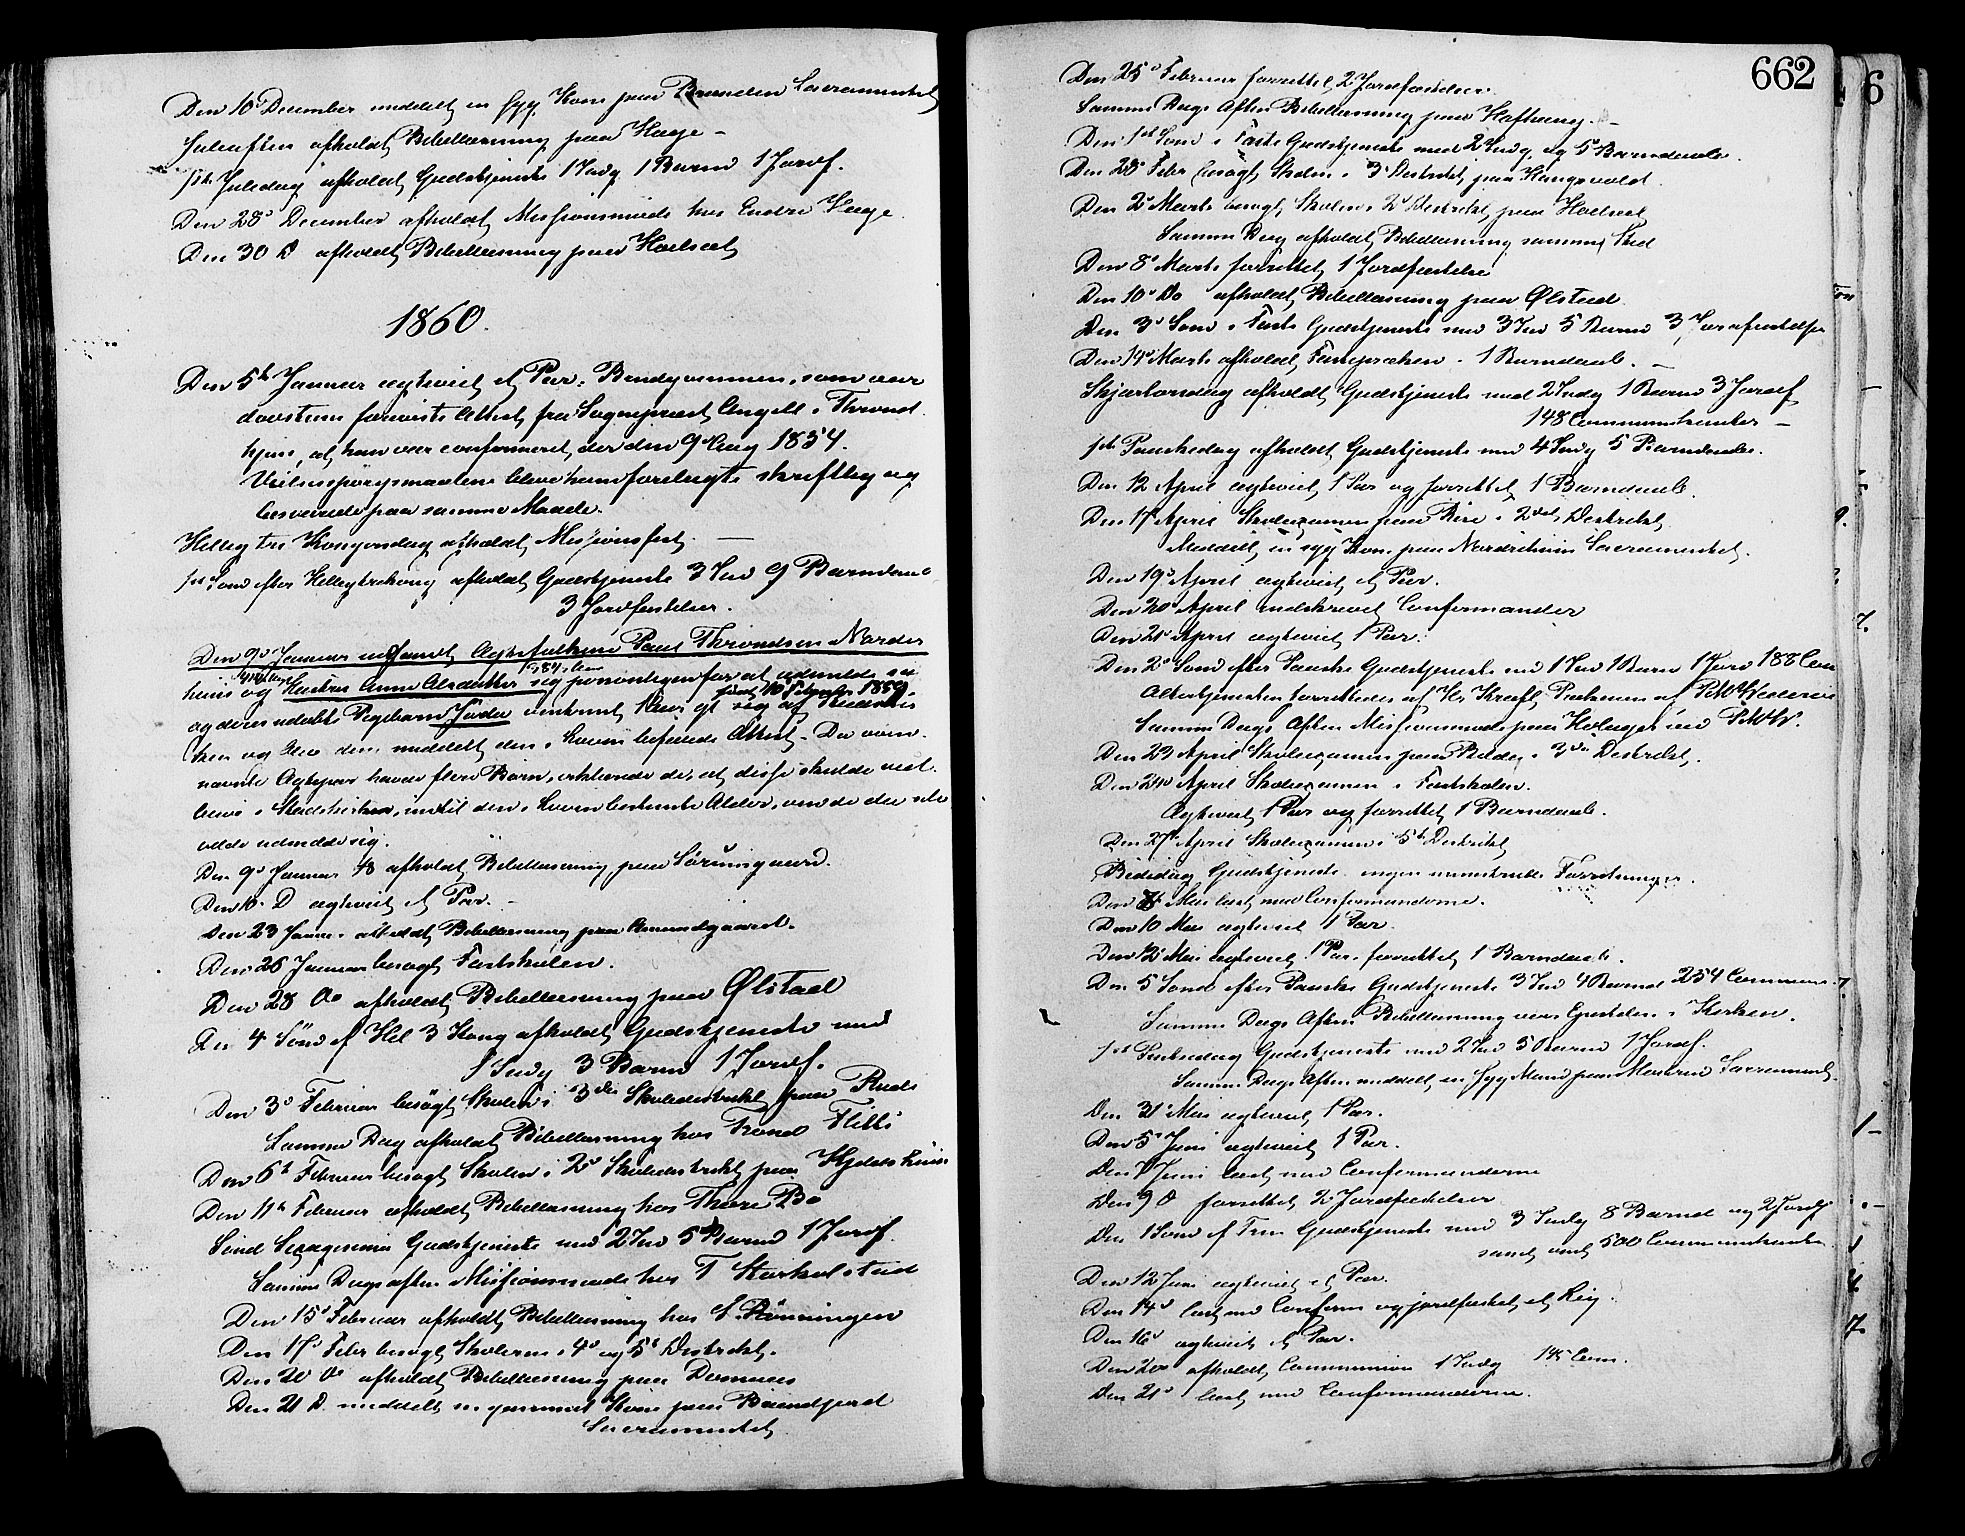 Den 10' December meddelt en syg Kone paa Brænden Sacramentet
Juleaften afholdt Bibellæsning paa Hage –
1ste Juledag afholdt Gudstjeneste 1 Indg 1 Barnd 1 Jordf.
Den 28' December afholdt Missionsmøde hos Endre Hage.
Den 30 D afholdt Bibellæsning paa Hoelsæt
1860.
Den 5te Januar ægteviet et Par. Brudgommen, som var
døvstum foreviste Attest fra Sognepræst Angell i Thrond
hjem, at han var confirmeret der den 9' Aug 1854.
Vielsesspørgsmaalene bleve ham forelagte skriftlig og
besvarede paa samme Maade.
Hellig tre Kongersdag afholdt Missionsfest. —
1st Sønd efter Helligtrekong afholdt Gudstjeneste 3 Ind 9 Barndaab
3 Jordfæstelser.
Den 9' Januar indfandt Ægtefolkene Paul Throndsen Nordis
huus og Hustru Anne Alsdatter sig personligen for at udmelde sig
og deres udøbte Pigebarn født 10 Februar 1859
af Statskir
ken og blev den meddelt den i Loven befalede Attest – Da oven
nævnte Ægtepar havde flere Børn, erklærede de, at disse skulde ved
blive i Statskirken, indtil den i Loven bestemte Alder, om de da ville
udmelde sig.
Den 9' Januar afholdt Bibellæsning paa Sørumgaard.
Den 10. D ægteviet et Par. –
Den 23 Januar afholdt Bibellæsning paa Amundgaard.
Den 26 Januar besøgt Fastskolen.
Den 28 Do afholdt Bibellæsning paa Ølstad
Den 4 Sønd ef Hel 3 Kong afholdt Gudstjeneste med
1 Indg 3 Barnd 1 Jordf.
Den 3' Februar besøgt Skolen i 3die Skoledistrikt paa Ruds
Samme Dag afholdt Bibellæsning hos Trond
Den 6te Februar besøgt Skolen i 2' Skoledistrikt paa
Den 11te Februar afholdt Bibellæsning hos Thore Bø
Sønd Sexagesima Gudstjeneste med 2 Ind 5 Barnd 1 Jordf.
Samme Dags aften Missionsmøde hos T Storkelstad
Den 15' Februar afholdt Bibellæsning hos Rønningen
Den 17' Febr besøgt Skolerne i 4' og 5' Distrikt.
Den 20 Do afholdt Bibellæsning paa
Den 21 D. meddelt en gammel Kone paa
Sacramentet
662
6
Den 25' Februar forrettet 2 Jordfæstelser.
Samme Dags Aften Bibellæsning paa –
Den 1st Sønd i Faste Gudstjeneste med 2 Indg og 5 Barndaab.
Den 28' Febr besøgt Skolen i 3' Distrikt paa Kongsvold.
Den 2' Marts besøgt Skolen i 2' Distrikt paa Hoelsæt
Samme Dag afholdt Bibellæsning samme Sted
Den 8' Marts forrettet 1 Jordfæstelse
Den 10' Do afholdt Bibellæsning paa Ølstad.
Den 3' Sønd i Faste Gudstjeneste med 3 Ind 5 Barnd 3 Jordfæstelser
Den 14' Marts afholdt Fastepræken. 1 Barndaab. –
Skjærtorsdag afholdt Gudstjeneste med 2 Indg 1 Barnd 3 Jordf
148 Communikanter –
1ste Paaskedag afholdt Gudstjeneste med 4 Indg 5 Barndaab.
Den 12 April ægteviet 1 Par og forrettet 1 Barndaab.
Den 17' April Skoleexamen paa Bise i 2det Distrikt
Meddelt en syg Kone paa Nordrehuus Sacramentet.
Den 19' April ægteviet et Par.
Den 20' April indskrevet Confirmander
Den 21' April ægteviet 1 Par.
Den 2' Sønd efter Paaske Gudstjeneste med 1 Ind 1 Barn 1 Jord 188 Com
Altertjenesten forrettedes af Hr Kraft, Prækenen af
Samme Dags Aften Missionsmøde paa ved
Den 23 April Skoleexamen paa i 3die Distrikt.
Den 24de April Skoleexamen i Fastskolen.
Ægteviet 1 Par og forrettet 1 Barndaab.
Den 27' April Skoleexamen i 5te Distrikt
Bededag Gudstjeneste ingen ministrielle Forretninger.
Den Mai læst med Confirmanderne.
Den 10 Mai ægteviet 1 Par.
Den 12' Mai ægteviet 1 Par. forrettet 1 Barndaab.
Den 5 Sønd efter Paaske Gudstjeneste 3 Ind 4 Barnd 254 Commun.
Samme Dags Aften Bibellæsning over Epistelen i Kirken.
1st Pintsedag Gudstjeneste med 2 Ind 5 Barnd 1 Jordf.
Samme Dags Aften meddelt en syg Mand paa Sacrament.
Den 31' Mai ægteviet 1 Par.
Den 5' Juni ægteviet 1 Par.
Den 7 Juni læst med Confirmanderne
Den 9 D forrettet 2 Jordfæstelser
Den 1 Sønd ef Trin Gudstjeneste med 3 Indg 8 Barnd og 2 Jordf
samt omt 500 Communikanter
Den 12 Juni ægteviet et Par.
Den 14' læst med Confirm og jordfæstet et Lig.
Den 16' ægteviet et Par.
Den 20de afholdt Communion 1 Indg 145 Com.
Den 21' læst med Confirmanderne.